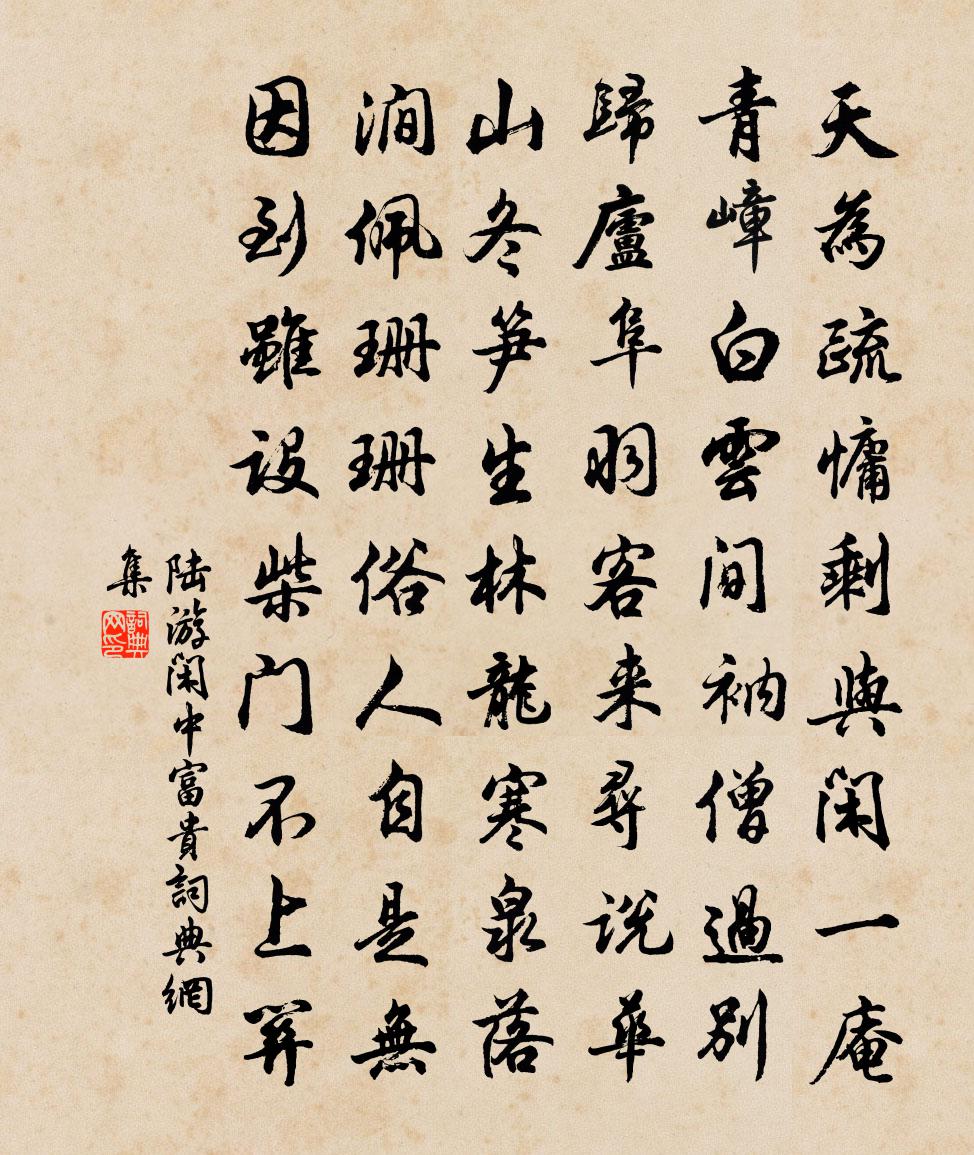 天為疏慵剩與閑一庵
青嶂白雲間衲僧過別
歸廬阜羽客来尋説華
山冬笋生林龍寒泉落
澗佩珊珊俗人自是無
因到雖設柴门不上関
陆游閑中富貴詞典網
集
詞典网印